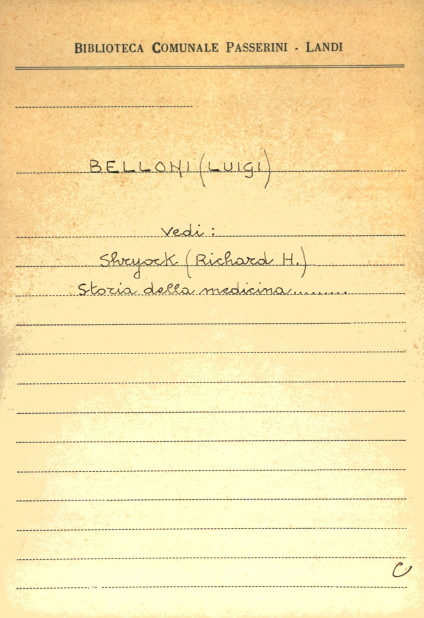 BIBLIOTECA COMUNALE PASSERINI - LANDI
BELLONI (LUIGI)
Vedi:
Shryock (Richard H.)
Storia della medicina.........
C